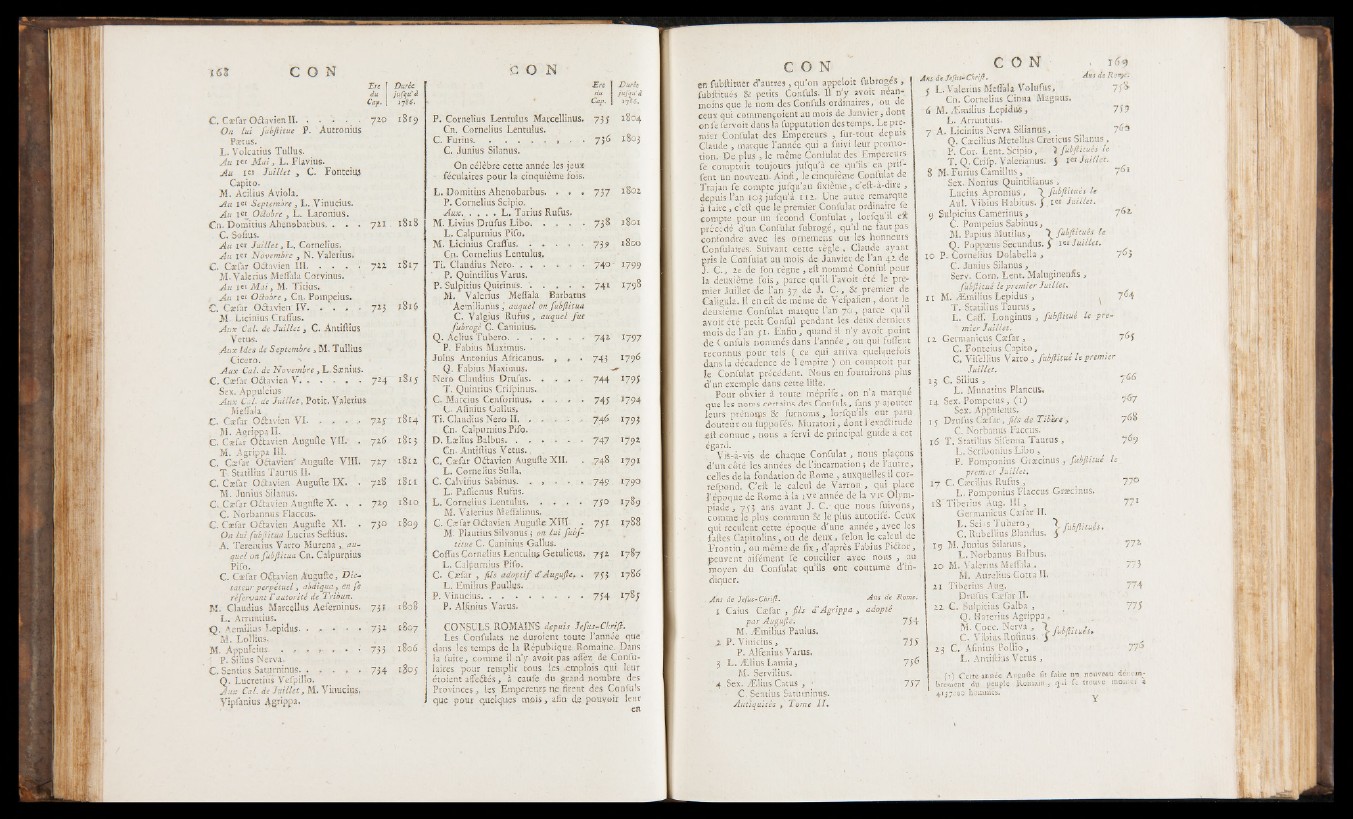 168 CON CON
Ere du Cap. Durée jusqu'à 1786.
C. Cæsar Octavien II. . . . . . 720 1819
On lui substitue P. Autronius
Pœtus.
L. Volcatius Tullus.
Au 1er Mai, L. Flavius.
Au 1er Juillet, C. Fonteius
Capito.
M. Acilius Aviola.
Au 1er Septembre, L. Vinucius.
Au 1er Octobre, L. Laronius.
Cn. Domitius Ahenobarbus. . . . 721 1818
C. Sosius.
Au 1er Juillet, L. Cornelius.
Au 1er Novembre, N. Valerius.
C. Cæsar Octavien III. . . . . 722 1817
M. Valerius Messala Corvinus.
Au 1er Mai, M. Titius.
Au 1er Octobre, Cn. Pompeius.
C. Cæsar Octavien IV. . . . . 723 1816
M. Licinius Crassus.
Aux Cal. de Juillet, C. Antistius
Vetus.
Aux Ides de Septembre, M. Tullius
Cicero.
Aux Cal. de Novembre, L. Sænius.
C. Cæsar Octavien V. . . . . . 724 1815
Sex. Appuleius
Aux Cal. de Juillet, Potit. Valerius
Messala
C. Cæsar Octavien VI. . . . . 725 1814
M. Agrippa II.
C. Cæsar Octavien Auguste VII. . 726 1813
M. Agrippa III.
C. Cæsar Octavien Auguste VIII. 727 1812
T. Statilius Taurus II.
C. Cæsar Octavien Auguste IX. . 728 1811
M. Junius Silanus.
C. Cæsar Octavien Auguste X. . . 729 1810
C. Norbannus Flaccus.
C. Cæsar Octavien Auguste XI. . 730 1809
On lui substitua Lucius Sestius.
A. Terentius Varro Murena, au-
quel on substitua Cn. Calpurnius
Piso.
C. Cæsar Octavien Auguste, Dic-
tateur perpétuel, abdiqua, en se
réservant l'autorité de Tribun.
M. Claudius Marcellus Aeserninus. 731 1808
L. Arruntius.
Q. Aemilius Lepidus. . . . . . 732 1807
M. Lollius.
M. Appuleius. . . . . . . . 733 1806
P. Silius Nerva.
C. Sentius Saturninus. . . . . . 734 1805
Q. Lucretius Vespillo.
Aux Cal. de Juillet, M. Vinucius.
Vipsanius Agrippa.
Ere du Cap. Durée jusqu'à 1786.
P. Cornelius Lentulus Marcellinus. 735 1804
Cn. Cornelius Lentulus.
C. Furius. . . . . . . . . 736 1803
C. Junius Silanus.
On célèbre cette année les jeux
séculaires pour la cinquième fois.
L. Domitius Ahenobarbus. . . . 737 1802
P. Cornelius Scipio.
Aux. . . . . L. Tarius Rufus.
M. Livius Drusus Libo. . . . . 738 1801
L. Calpurnius Piso.
M. Licinius Crassus. . . . . . 739 1800
Cn. Cornelius Lentulus.
Ti. Claudius Nero. . . . . . . 740 1799
P. Quintilius Varus.
P. Sulpitius Quirinus. . . . . . 741 1798
M. Valerius Messala Barbatus
Aemilianus; auquel on substitua
C. Valgius Rufus, auquel fut
subrogé C. Caninius.
Q. Aelius Tubero. . . . . . . 742 1797
P. Fabius Maximus.
Julus Antonius Africanus. . . . 743 1796
Q. Fabius Maximus.
Nero Claudius Drusus. . . . . 744 1795
T. Quintius Crispinus.
C. Marcius Censorinus. . . . . 745 1794
C. Asinius Gallus.
Ti. Claudius Nero II. . . . . . 746 1793
Cn. Calpurnius Piso.
D. Lælius Balbus. . . . . . . 747 1792
Cn. Antistius Vetus.
C. Cæsar Octavien Auguste XII. 748 1791
L. Cornelius Sulla.
C. Calvisius Sabinus. . . . . . 749 1790
L. Passienus Rufus.
L. Cornelius Lentulus. . . . . 750 1789
M. Valerius Messalinus.
C. Cæsar Octavien Auguste XIII. . 751 1788
M. Plautius Silvanus; on lui subs-
titue C. Caninius Gallus.
Cossus Cornelius Lentulus Getulicus. 752 1787
L. Calpurnius Piso.
C. Cæsar, fils adoptif d'Auguste. . 753 1786
L. Emilius Paullus.
P. Vinucius. . . . . . . . . 754 1785
P. Alfinius Varus.
CONSULS ROMAINS depuis Jesus-Christ.
Les Consulats ne duroient toute l'année que
dans les temps de la République Romaine. Dans
la suite, comme il n'y avoit pas assez de Consu-
laires pour remplir tous les emplois qui leur
étoient affectés, à cause du grand nombre des
Provinces, les Empereurs ne firent des Consuls
que pour quelques mois, afin de pouvoir leur
en
CON CON 169
en substituer d'autres, qu'on appeloit subrogés,
substitués & petits Consuls. Il n'y avoit néan-
moins que le nom des Consuls ordinaires, ou de
ceux qui commençoient au mois de Janvier, dont
on se servoit dans la supputation des temps. Le pre-
mier Consulat des Empereurs, sur-tout depuis
Claude, marque l'année qui a suivi leur promo-
tion. De plus, le même Consulat des Empereurs
se comptoit toujours jusqu'à ce qu'ils en pris-
sent un nouveau. Ainsi, le cinquième Consulat de
Trajan se compte jusqu'au sixième, c'est-à-dire,
depuis l'an 103 jusqu'à 112. Une autre remarque
à faire, c'est que le premier Consulat ordinaire se
compte pour un second Consulat, lorsqu'il est
précédé d'un Consulat subrogé, qu'il ne faut pas
confondre avec les ornemens ou les honneurs
Consulaires. Suivant cette règle, Claude ayant
pris le Consulat au mois de Janvier de l'an 42 de
J. C., 2e de son règne, est nommé Consul pour
la deuxième fois, parce qu'il l'avoit été le pre-
mier Juillet de l'an 37 de J. C., & premier de
Caligula. Il en est de même de Vespasien, dont le
deuxième Consulat marque l'an 70, parce qu'il
avoit été petit Consul pendant les deux derniers
mois de l'an 51. Enfin, quand il n'y avoit point
de Consuls nommés dans l'année, ou qui fussent
reconnus pour tels (ce qui arriva quelquefois
dans la décadence de l'empire) on comptoit par
le Consulat précédent. Nous en fournirons plus
d'un exemple dans cette liste.
Pour obvier à toute méprise, on n'a marqué
que les noms certains des Consuls, sans y ajouter
leurs prénoms & surnoms, lorsqu'ils ont paru
douteux ou supposés. Muratori, dont l'exactitude
est connue, nous a servi de principal guide à cet
égard.
Vis-à-vis de chaque Consulat, nous plaçons
d'un côté les années de l'incarnation; de l'autre,
celles de la fondation de Rome, auxquelles il cor-
respond. C'est le calcul de Varron, qui place
l'époque de Rome à la IVe année de la VIe Olym-
piade, 753 ans avant J. C. que nous suivons,
comme le plus commun & le plus autorisé. Ceux
qui reculent cette époque d'une année, avec les
fastes Capitolins, ou de deux, selon le calcul de
Frontin, ou même de six, d'après Fabius Pictor,
peuvent aisément se concilier avec nous, au
moyen du Consulat qu'ils ont coutume d'in-
diquer.
Ans de Jesus-Christ. Ans de Rome.
1 Caius Cæsar, fils d'Agrippa, adopté
par Auguste. 754
M. Æmilius Paulus.
2 P. Vinicius, 755
P. Alfenius Varus.
3 L. Ælius Lamia, 756
M. Servilius.
4 Sex. Ælius Catus, 757
C. Sentius Saturninus.
Antiquités, Tome II.
Ans de Jesus-Christ. Ans de Rome.
5 L. Valerius Messala Volusus, 758
Cn. Cornelius Cinna Magnus.
6 M. Æmilius Lepidus, 759
L. Arruntius.
7 A. Licinius Nerva Silianus, 760
Q. Cæcilius Metellus Creticus Silanus,
P. Cor. Lent. Scipio, } substitués le
T. Q. Crisp. Valerianus. 1er Juillet.
8 M. Furius Camillus, 761
Sex. Nonius Quintilianus,
Lucius Apronius, } substitués le
Aul. Vibius Habitus. 1er Juillet.
9 Sulpicius Camerinus, 762
C. Pompeius Sabinus,
M. Papius Mutilus, } substitués le
Q. Poppæus Secundus. 1er Juillet.
10 P. Cornelius Dolabella, 763
C. Junius Silanus,
Serv. Corn. Lent. Maluginensis,
substitué le premier Juillet.
11 M. Æmilius Lepidus, 764
T. Statilius Taurus,
L. Cass. Longinus, substitué le pre-
mier Juillet.
12 Germanicus Cæsar, 765
C. Fonteius Capito,
C. Visellius Varro, substitué le premier
Juillet.
13 C. Silius, 766
L. Munatius Plancus.
14 Sex. Pompeius, (1) 767
Sex. Appuleius.
15 Drusus Cæsar, fils de Tibère, 768
C. Norbanus Faccus.
16 T. Statilius Sisenna Taurus, 769
L. Scribonius Libo,
P. Pomponius Græcinus, substitué le
premier Juillet.
17 C. Cæcilius Rufus, 770
L. Pomponius Flaccus Græcinus.
18 Tiberius Aug. III, 771
Germanicus Cæsar II.
L. Seius Tubero, } substitués.
C. Rubellius Blandus.
19 M. Junius Silanus, 772
L. Norbanus Balbus.
20 M. Valerius Messala, 773
M. Aurelius Cotta II.
21 Tiberius Aug. 774
Drusus Cæsar II.
22 C. Sulpitius Galba, 775
Q. Haterius Agrippa.
M. Cocc. Nerva, } substitués.
C. Vibius Rufinus
23 C. Asinius Pollio, 776
L. Antistius Vetus,
(1) Cette année Auguste fit faire un nouveau dénom-
brement du peuple Romain, qui se trouve monter à
hommes.
Y